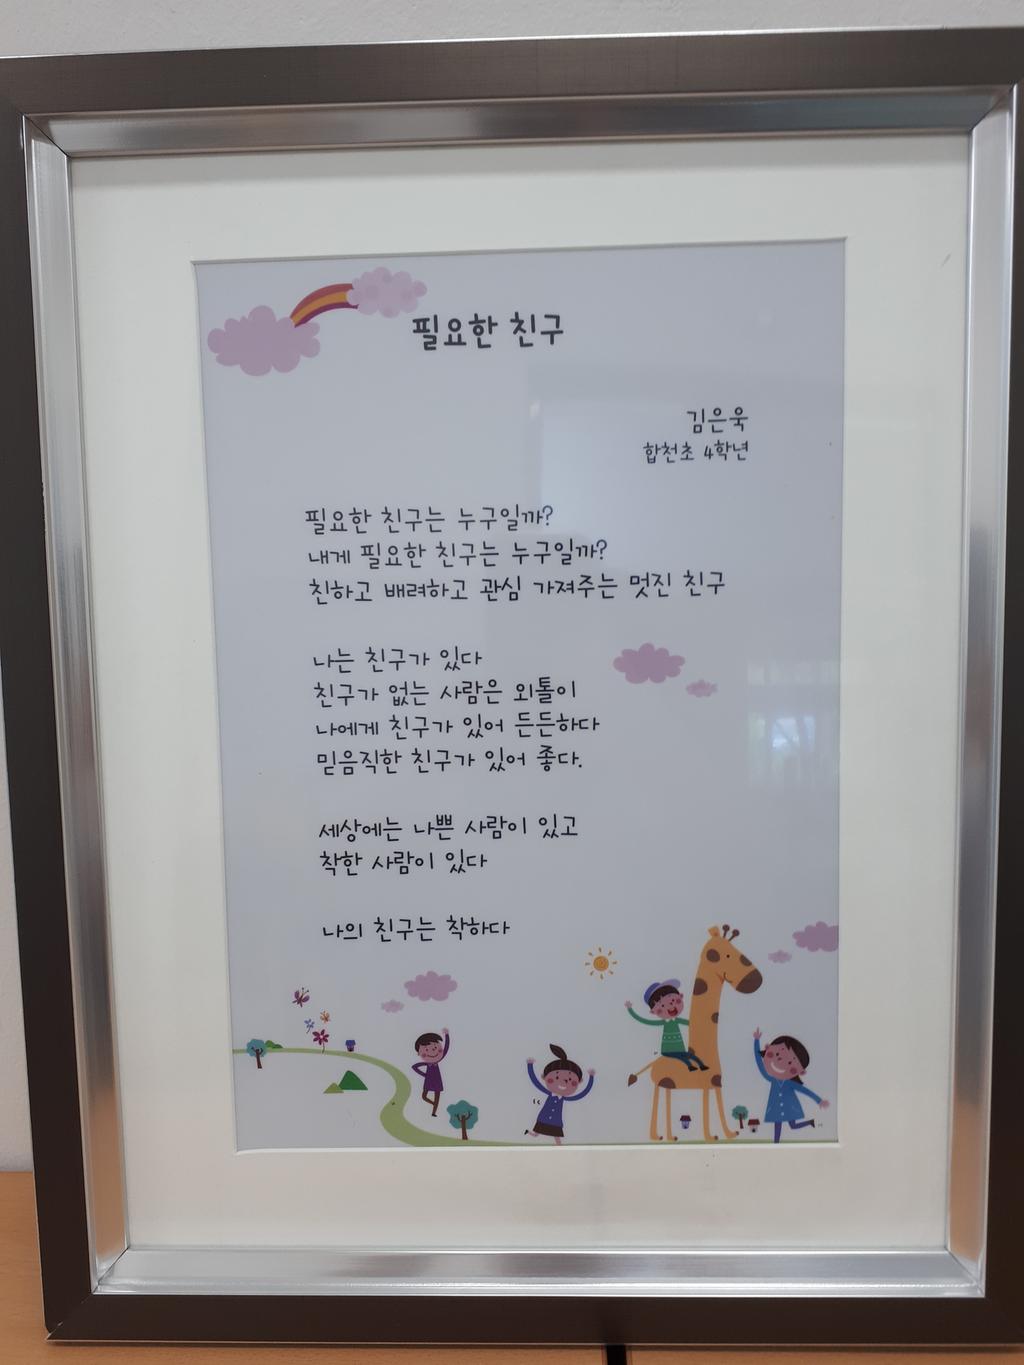 필요한 친구
김은욱
합천초 4학년
필요한 친구는 누구일까?
내게 필요한 친구는 누구일까?
친하고 배려하고 관심 가져주는 멋진 친구
나는 친구가 있다
친구가 없는 사람은 외톨이
나에게 친구가 있어 든든하다
믿음직한 친구가 있어 좋다.
세상에는 나쁜 사람이 있고
착한 사람이 있다
나의 친구는 착하다